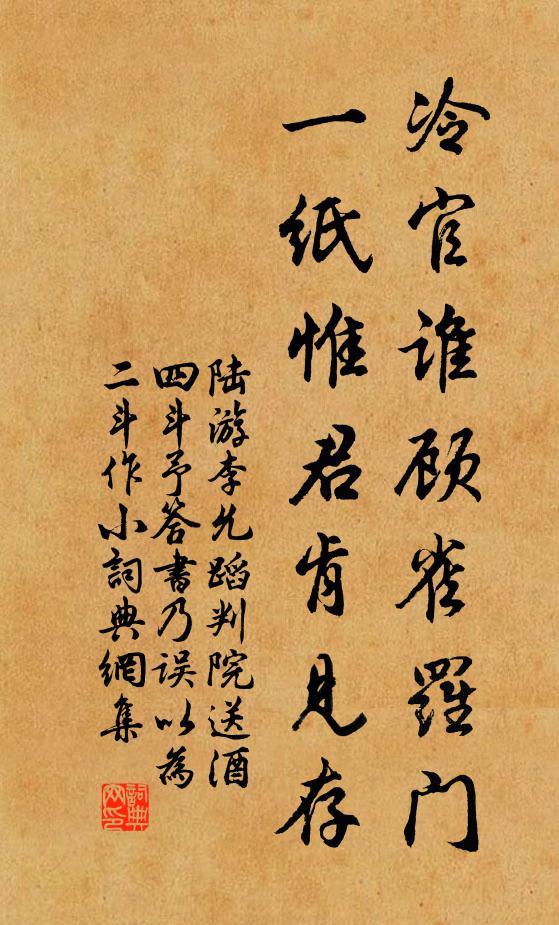 冷官谁顾雀羅门
一纸惟君肯見存
陆游李允蹈判院送酒
四斗予答書乃误以為
二斗作小詞典網集
詞典網印